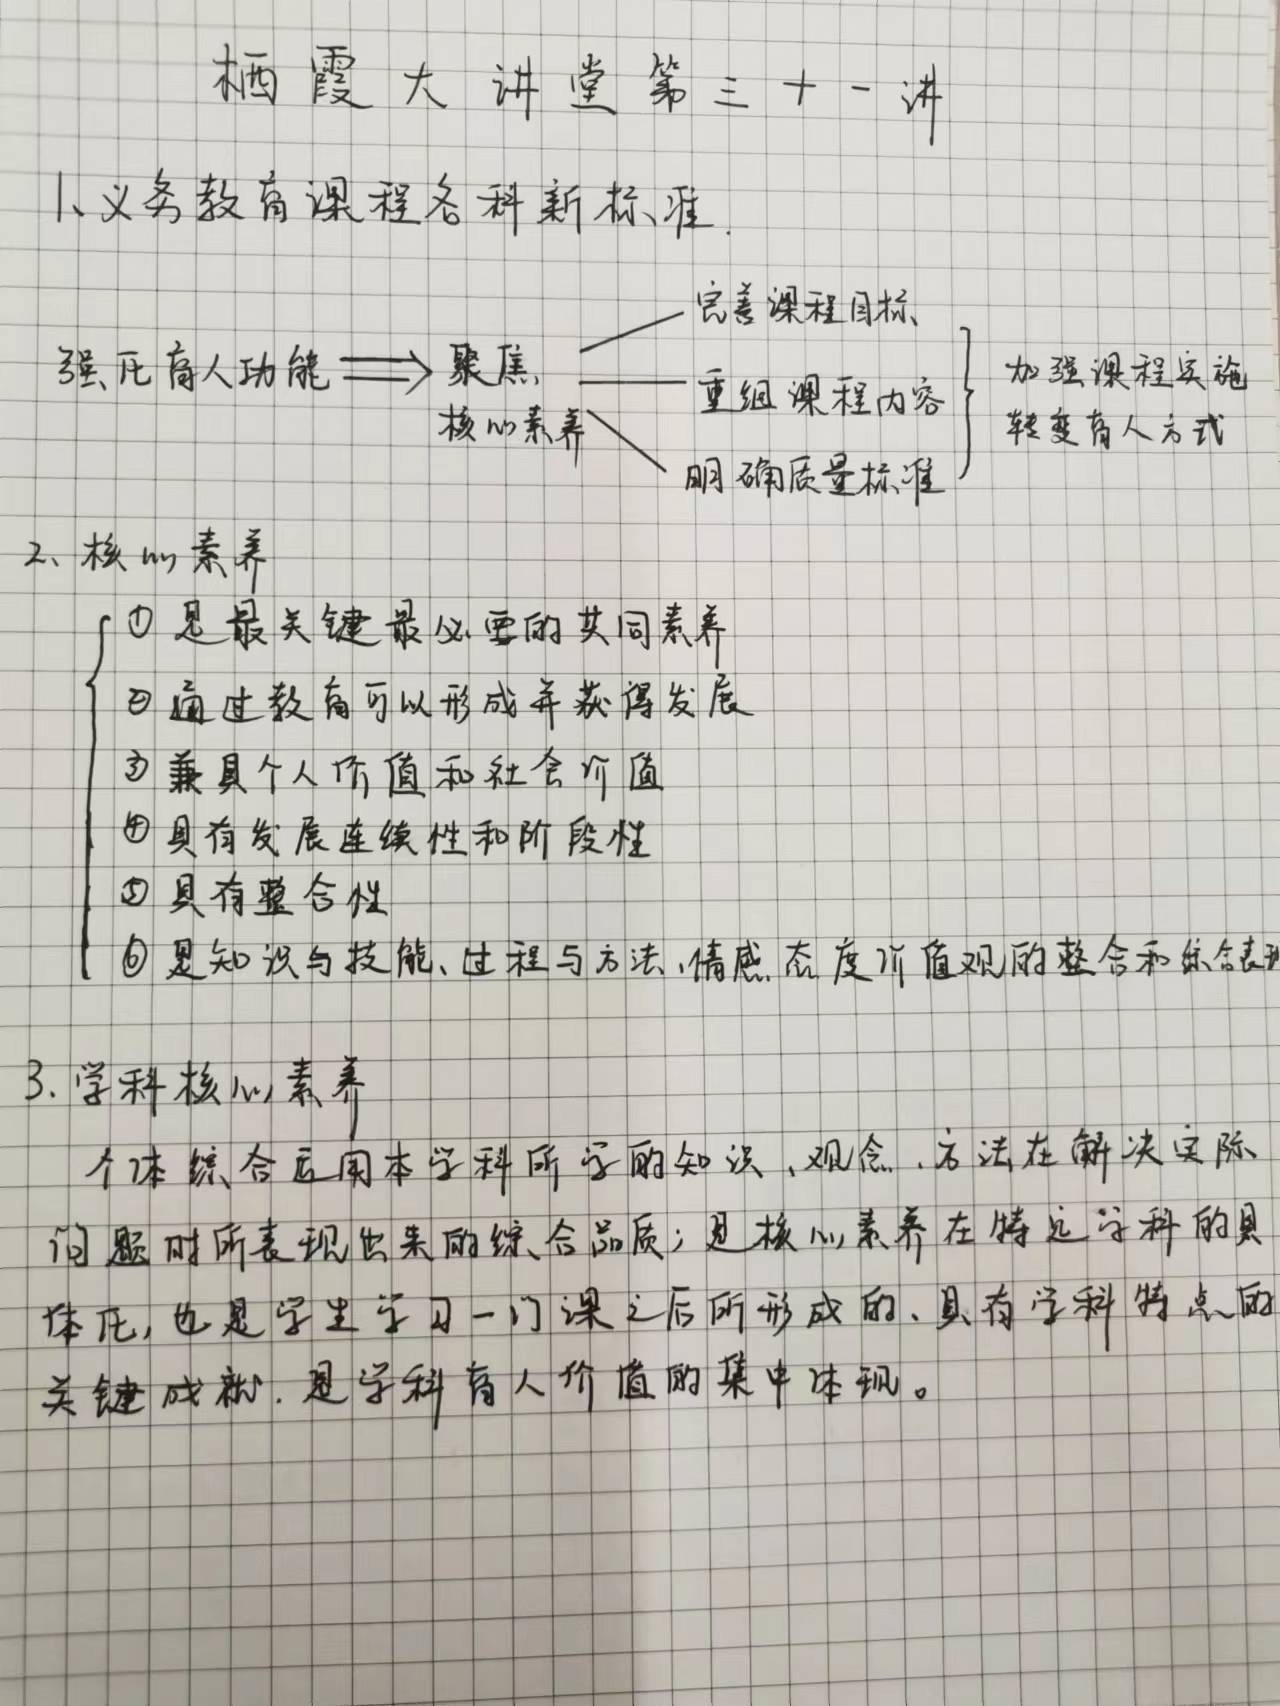 栖霞大讲堂第三十一讲
1、义务教育课程各科新标准.
完善课程目标
强化育人功能 聚焦 重组课程内容 加强课程实施
核心素养 转变育人方式
明确质量标准
2、核心素养
① 是最关键最必要的共同素养
② 通过教育可以形成并获得发展
③ 兼具个人价值和社会价值
④ 具有发展连续性和阶段性
⑤ 具有整合性
⑥ 是知识与技能、过程与方法、情感态度价值观的整合和综合表现
3.学科核心素养
个体综合应用本学科所学的知识、观念、方法在解决实际
问题时所表现出来的综合品质；是核心素养在特定学科的具
体化，也是学生学习一门课之后所形成的、具有学科特点的
关键成就.是学科育人价值的集中体现。